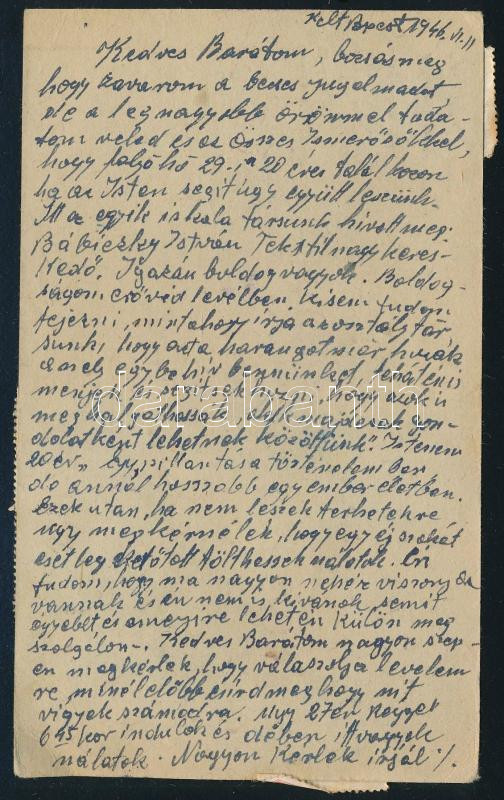 Kelt Bpest 1946. VI. 11
Kedves Barátom, bocsás meg
hogy zavarom a becses nyugalmadat
de a legnagyobb örömmel tuda-
tom veled és az összes Ismerősökkel,
hogy folyó hó 29-én 20 éves találkozon
ha az Isten segit úgy együtt leszünk.
Itt az egyik iskola társunk hívott meg
Bábiczky István Textil nagykeres-
kedő. Igazán boldog vagyok. Boldog-
ságom rövid levélben kisem tudom
fejezni, mint ahogy irja az osztálytár
sunk, hogy azt a harangot már húzák
amely egybe hív bennünket
menjek és segitsek húzni, hogy azok is
meghalgathassák akik már csak gon-
dolatként lehetnek közöttünk". Istenem
20 év „ Egy pillantás a történelemben
de annál hosszabb egy ember életben.
Ezek után, ha nem leszek terhetekre
úgy megkérnélek, hogy egy éjszakát
esetleg tölthessek nálatok. Én
tudom, hogy ma nagyon nehéz viszonyok
vannak és én nem is kívánok semit
egyebet és amenyire leheten külön meg
szolgálom. Kedves Barátom nagyon szép-
en megkérlek, hogy válaszolj a levelem
re minél előbb és írd meg hogy mit
vigyek számodra. Úgy 27én reggel
6 45 kor indulok és délben itt vagyok
nálatok. Nagyon kérlek írjál ./.
darabanth